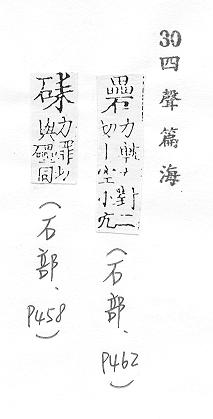 30 四聲篇海
礨
力軌力對二
切丨空小穴
(石部、P462)
力罪切
與礧同
(石部、P458)